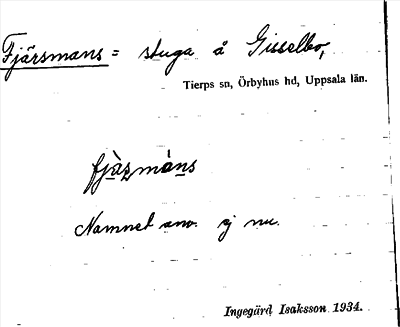 Fjärsmans = stuga å Gisselbo,
Tierps sn, Örbyhus hd, Uppsala län.
fjæ̀ʐmȧns
Namnet anv. ej nu.
Ingegärd Isaksson 1934.